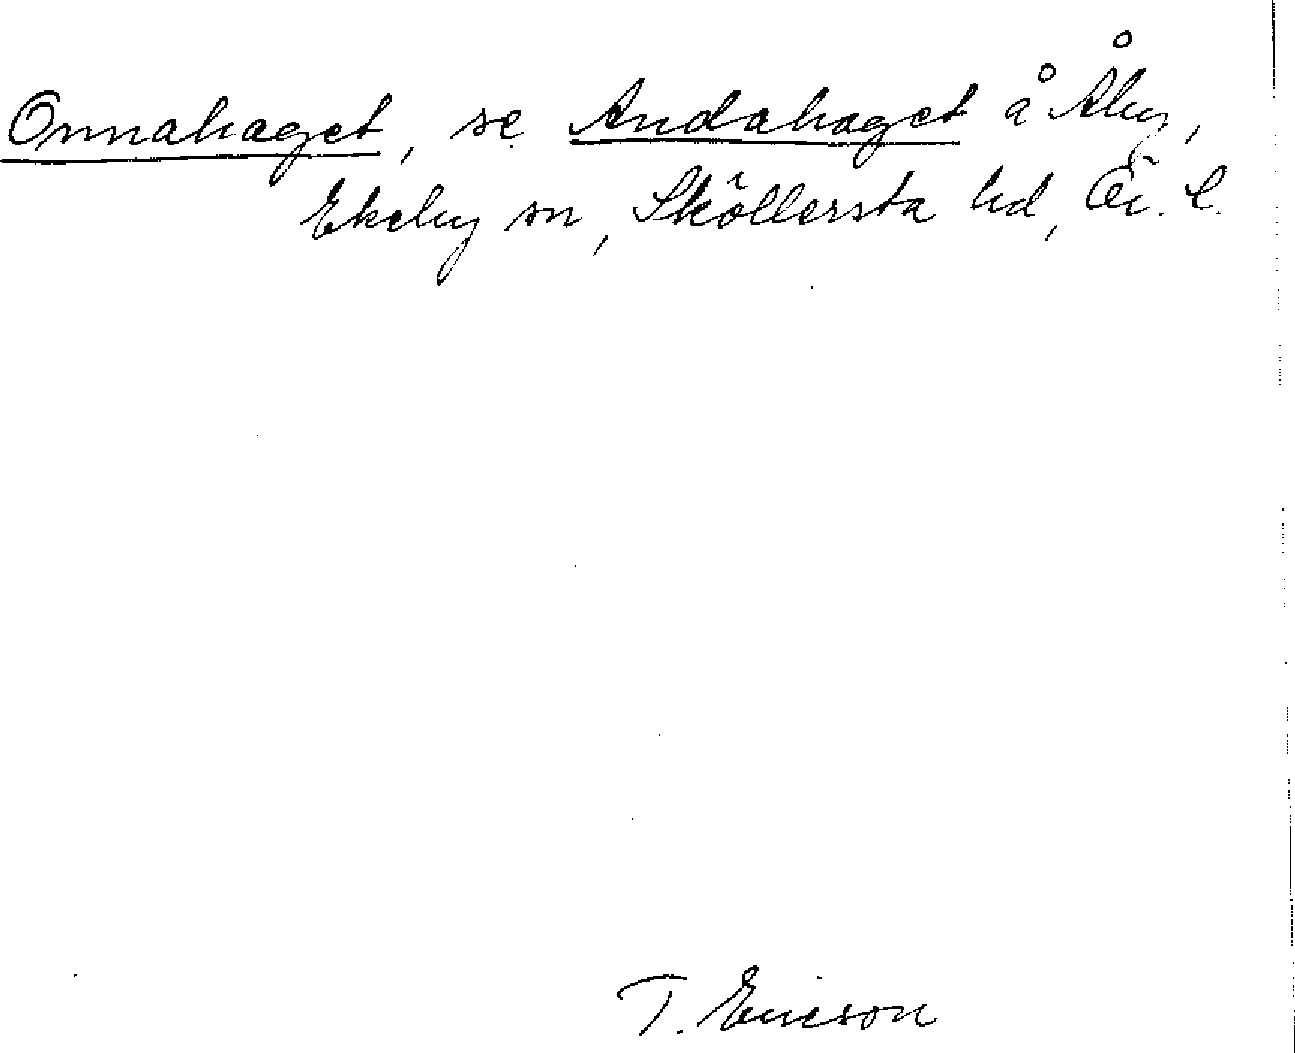 Onnahaget, se Andahaget å Åby,
Ekeby sn, Sköllersta hd, Ör. l.
T. Ericson